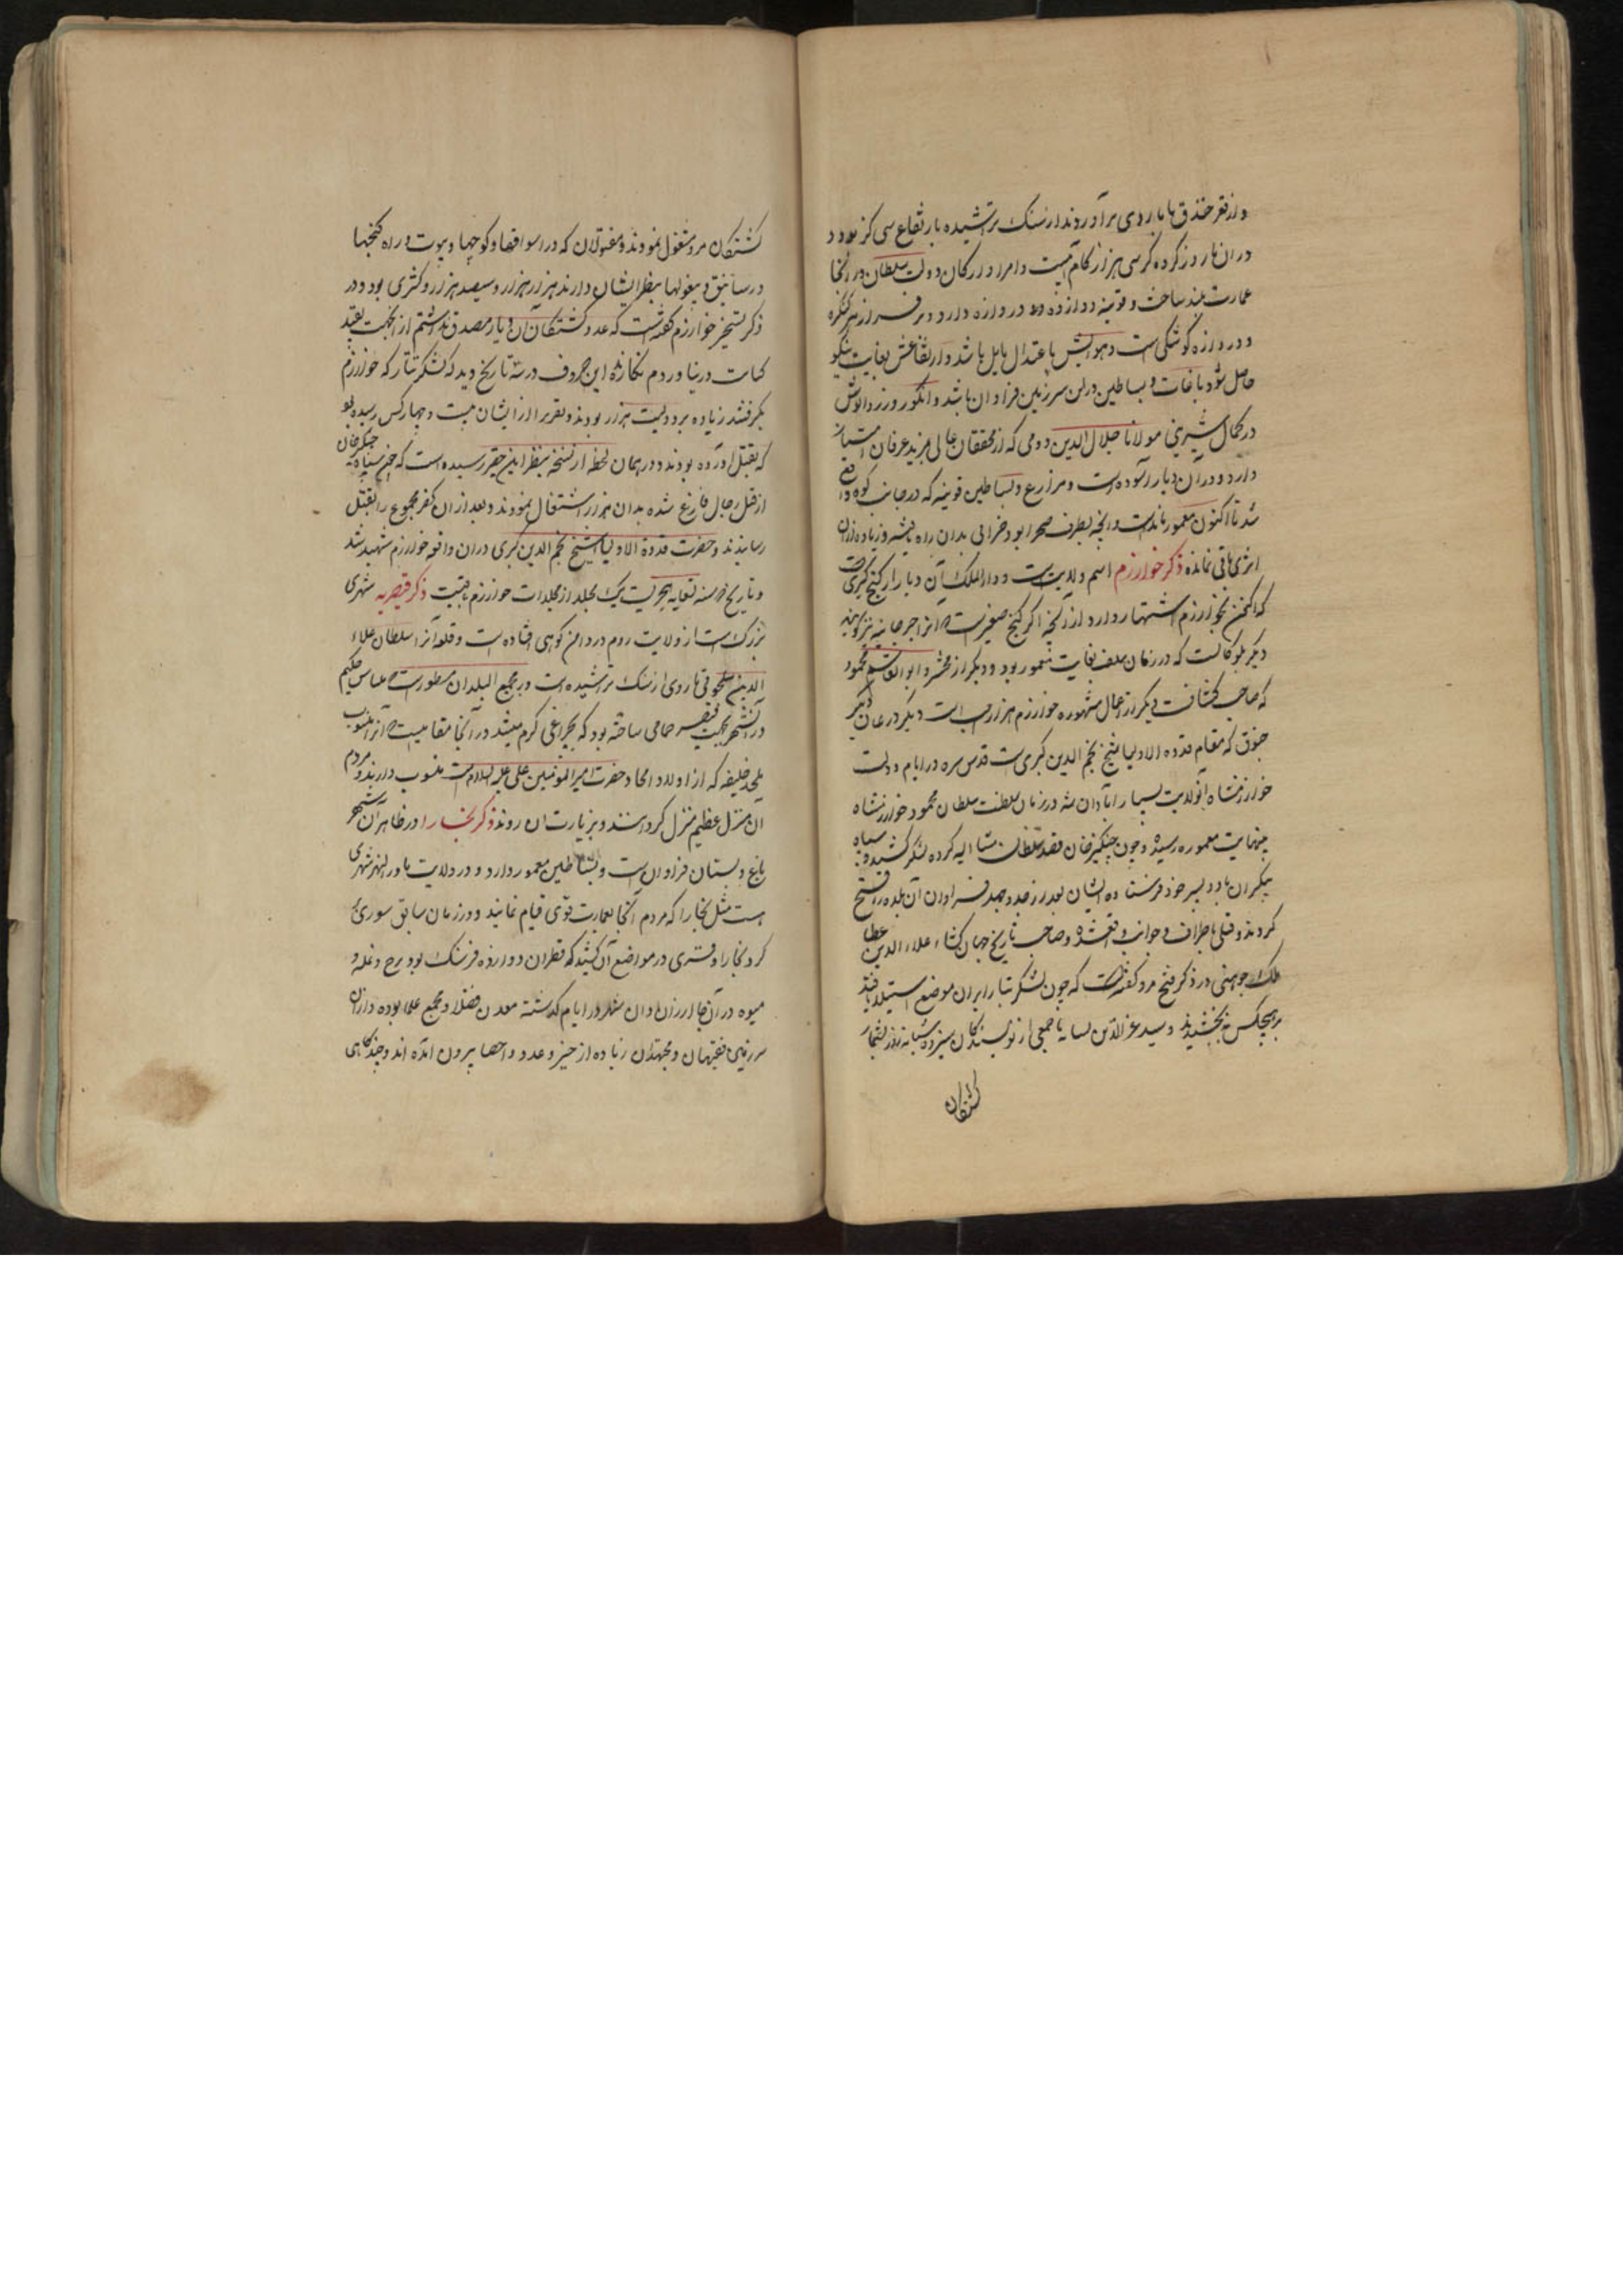 و از قعر خندق تا باروی برآوردند از سنک تراشیده بارتفاع سی کز بود و
دران باروز کرده کرسی هزار کام است و امرا و ارکان دولت سلطان در آنجا
عمارت بلند ساخت و قونیه دوازده دروازه دارد و بر فراز هر کنکره
و دروازه کوشکی است و هوایش باعتدال مایل باشد و ارتفاعش بغایت نیکو
حاصل شود باغات و بساطین دران سرزمین فراوان باشد و انکور و زردالوش
در کمال شیرینی مولانا جلال الدین رومی که از محققان عالی مزید عرفان امتیاز
دارد و در آن دیار آسوده است و مزارع و بساطین قونیه که در جانب کوه واقع
شد تا اکنون معمور مانده است و آنچه بطرف صحرا بود خرابی بدان راه یافته و زیاده ازان
اثری باقی نمانده ذکر خوارزم اسم ولایت است و دارالملک آن دیار ارکنج کبری است
که اکنون بخوارزم اشتهار دارد از آنجه ارکنج صغیر است که آنرا جرجانیه نیز کویند
دیکر بلوکا است که در زمان سلف بغایت معمور بود و دیکر زمخشر و ابوالقاسم محمود
که صاحب کشاف است دیکر از اعمال مشهوره خوارزم هزارسب است دیکر درعان دیکر
جنوق که مقام قدوه الاولیا شیخ نجم الدین کبری است قدس سره در ایام دولت
خوارزمشاه آنولایت بسیار آبادان شد در زمان سلطنت سلطان محمود خوارزمشاه
بنهایت معموره رسید و چون چنکیزخان قصد سلطان مشار الیه کرده لشکر کشید و سپاه
بیکران با دو پسر خود فرستاده ایشان بعد از جد و جهد فراوان آن بلده را فتح
کردند و قتلی باطراف و جوانب واقع شده و صاحب تاریخ جهان کشا علاء الدین عطا
ملک جوینی در ذکر فتح مرو کفته است که چون لشکر تتار بران موضع استیلا یافتند
بر هیچکس نبخشیدند و سید عزالدین نسابه با جمعی از نویسندکان سیزده شبانه روز بشمار
کشتکان
کشتکان مرو مشغول نمودند و مقتولان که در اسواقها و کوچها و بیوت و راه کنجها
در ساتیق و بیغولها بنظر ایشان دارند هزار هزار و سیصد هزار و کثری بود و در
ذکر تسخیر خوارزم کفته است که عدد کشتکان آن دیار مصدق نداشتم از انجهت بقید
کتابت در نیاوردم نکارنده این حروف در سه تاریخ دید که لشکر تتار که خوارزم
بکرفتند زیاده بر دویست هزار بودند و بقرر از ایشان بیست و چهار کس رسیده بود
که بقتل آورده بودند و در همان لحظه از نسخه بنظر این حقیر رسیده است که چون سپاه چنکیزخان
از قتل رجال فارغ شده بدان هزار اشتغال نمودند و بعد از ان کفر مجموع را بقتل
رسانیدند و حضرت قدوة الاولیا شیخ نجم الدین کبری دران واقعه خوارزم شهید شد
و تاریخ یک مجلد از مجلدات خوارزم یافت ذکر قیصریه شهری
بزرک است از ولایت روم در دامن کوهی افتاده است و قلعه آنرا سلطان علاء
الدین سلجوقی باروی از سنک تراشیده است در مجمع البلدان مسطور است که بلیناس حکیم
درآنشهر بجهت قیصر حمامی ساخته بود که بچراغی کرم میشد در آنجا مقامیست که آنرا منسوب
بمحمد خلیفه که از اولاد امجاد حضرت امیر المومنین علی علیه السلام است منسوب دارند و مردم
آن منزل عظیم منزل کردانند و بزیارت ان روند ذکر بخارا در ظاهر آن شهر
باغ و بستان فراوان است و بساطین معمور دارد و در ولایت ماورالنهر شهری
هست مثل بخارا که مردم آنجا بعمارت قوی قیام نمایند و در زمان سابق سوری
کرد بخارا و قری در مواضع آن کشیدند که قطران دوازده فرسنک بود برج و غله و
میوه در آنجا ارزان و ان شهر در ایام کذشته معدن فضلا و مجمع علما بوده و ازان
سرزمین فقیهان و مجتهدان زیاده از حیز و عدد و احصا بیرون امده اند و چند کاهی